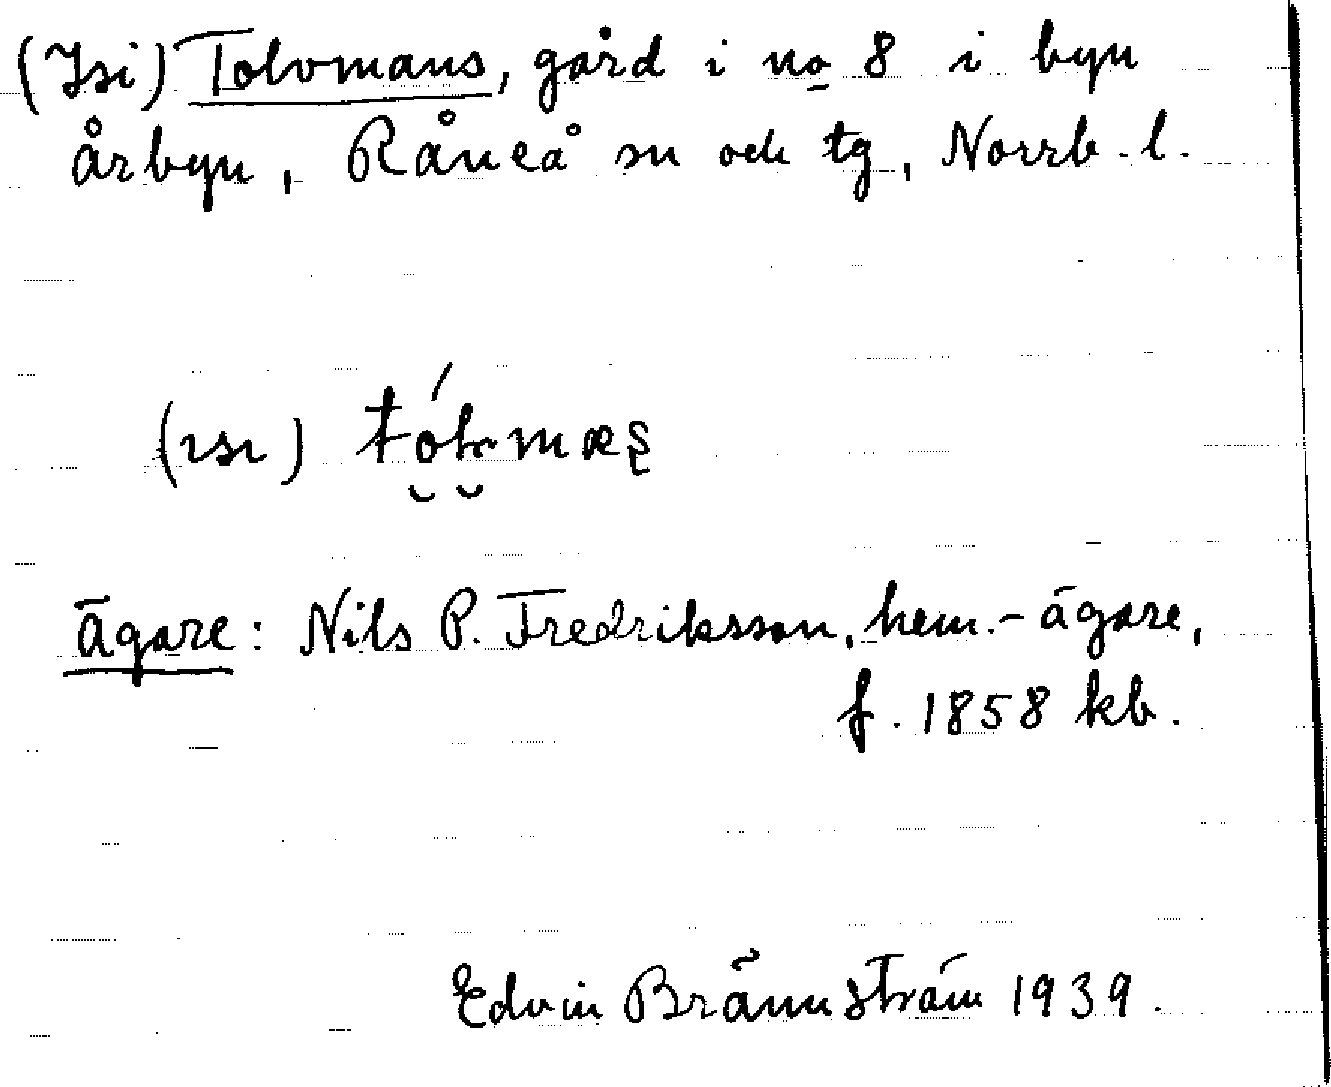 (Isi) Tolvmans, gård i no 8 i byn
årbyn, Råneå sn och tg, Norrb. l.
(ısı)
ägare: Nils P. Fredriksson, hem.-ägare,
f. 1858 kb.
Edvin Brännström 1939.